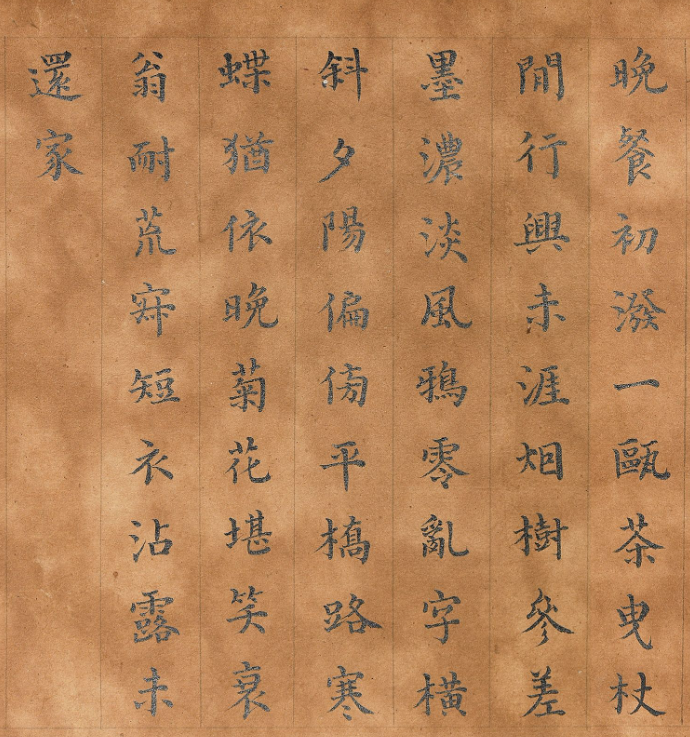 晚餐初潑一甌茶曳杖
閒行興未涯烟樹參差
墨濃淡風鴉零亂字橫
斜夕陽偏傍平橋路寒
蝶猶依晚菊花堪笑衰
翁耐荒寂短衣沾露未
還家